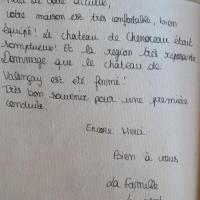 votre maison est très confortable, bien
équipé! Le chateau de Chenonceau était
somptueux! Et la region très reposante
Dommage que le chateau de
Valençay est été fermé!
Très bon souvenir pour une première
conduite.
Encore Merci
Bien à vous
La famille